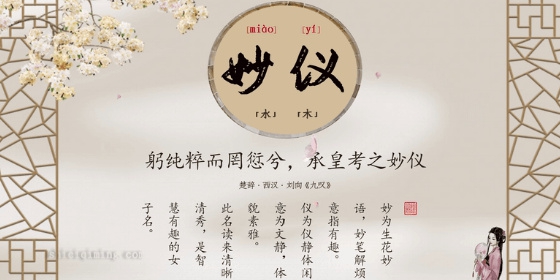 [miào] [yí]
妙仪
「水」 「木」
躬纯粹而罔愆兮，承皇考之妙仪
楚辞·西汉·刘向《九叹》
妙为生花妙
语，妙笔解烦
意指有趣。
仪为仪静体闲
意为文静，体
貌素雅。
此名读来清晰
清秀，是智
慧有趣的女
子名。